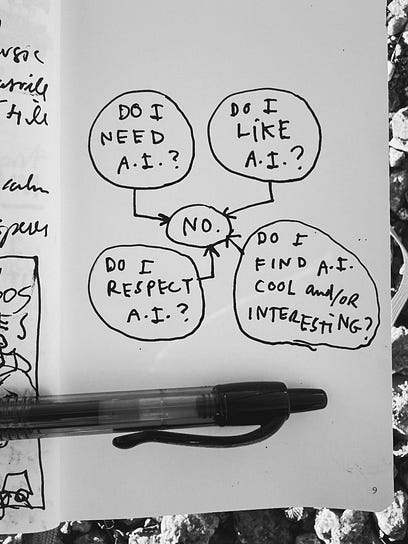 DO I
NEED
A.I.?
DO I
LiKE
A.I.?
NO.
DO I
RESPECT
A.I.?
DO I
FIND A.I.
COOL and/OR
INTERESTiNG?
9